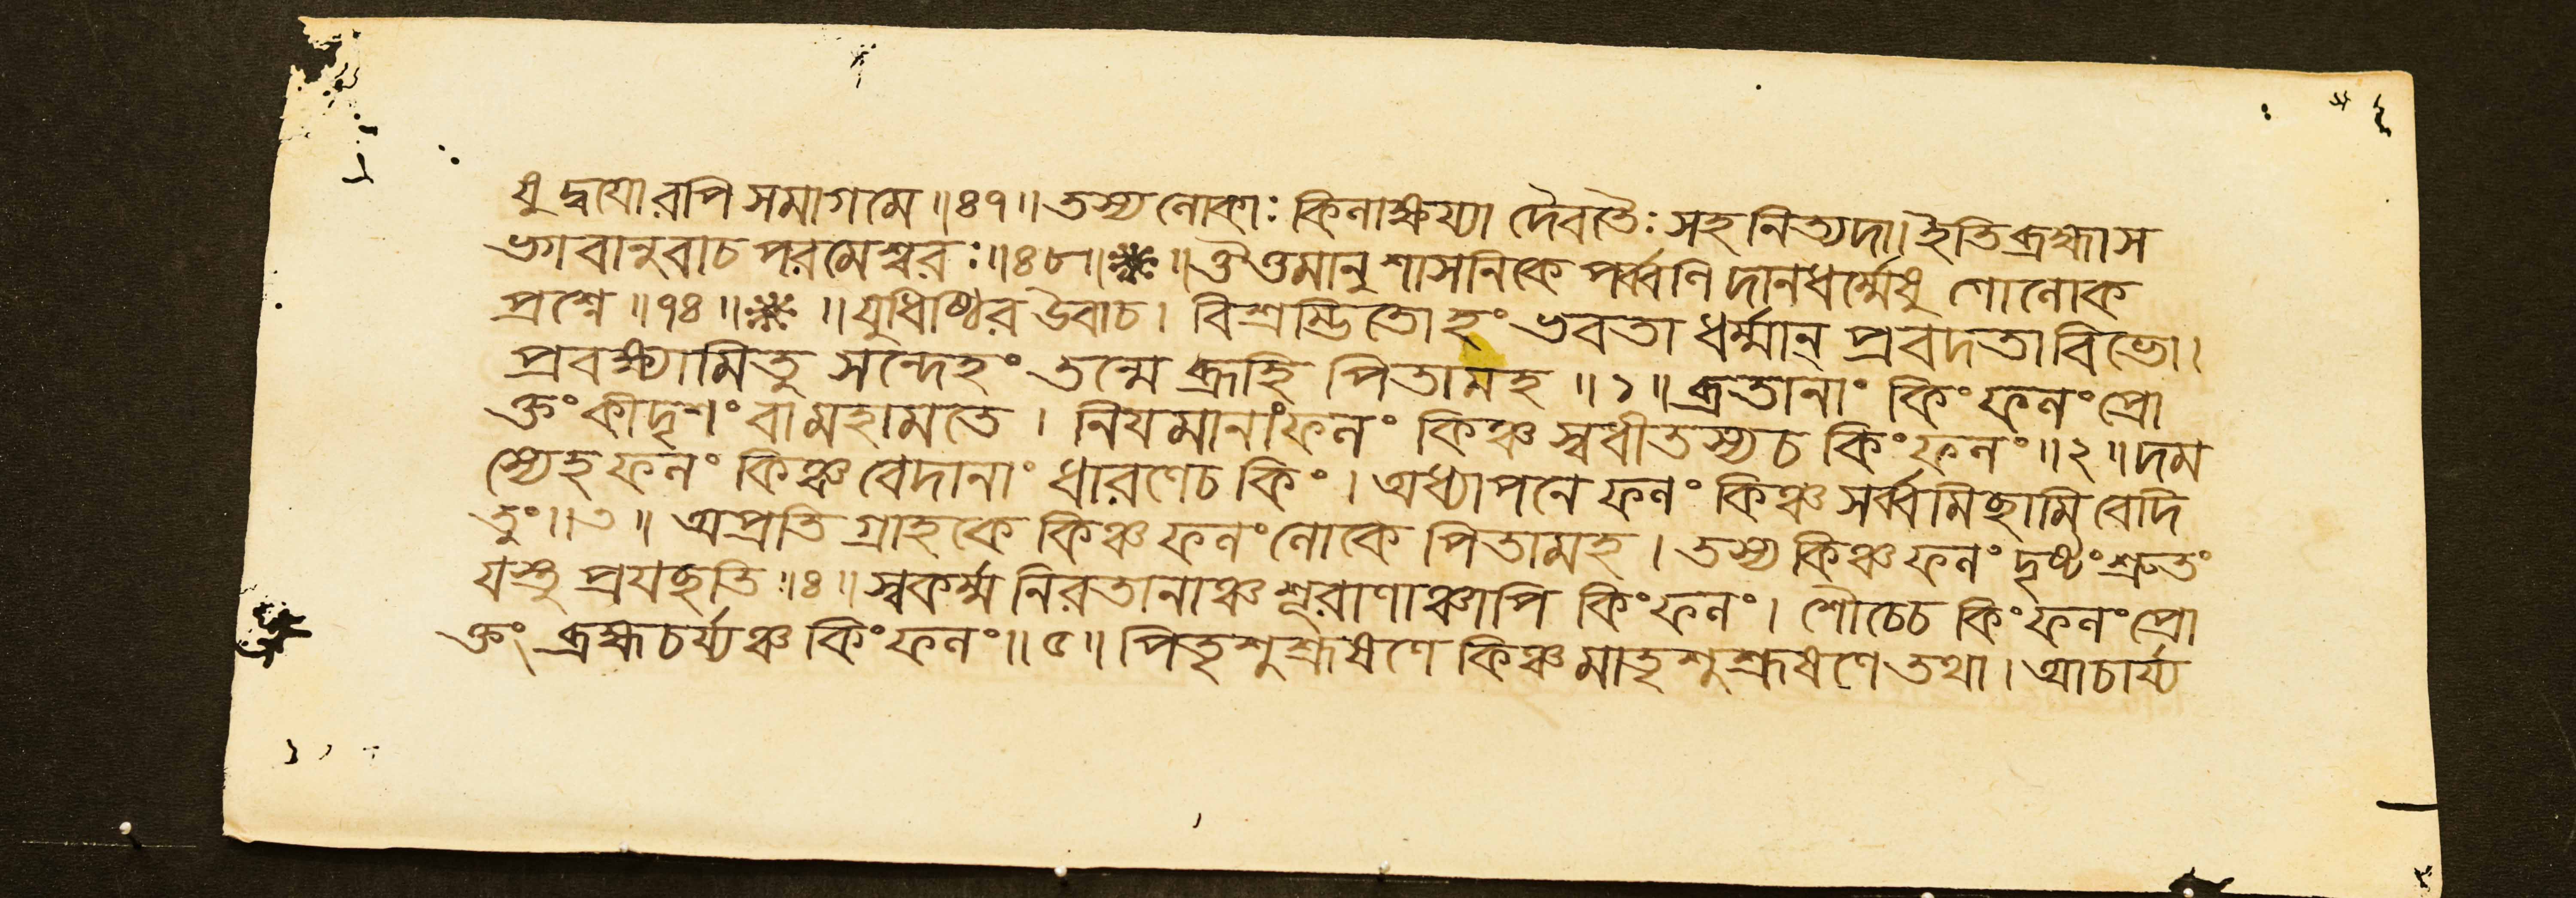 যু দ্বযোরপি সমাগমে ॥৪৭॥ তস্য লোকাঃ কিলাক্ষয্যা দৈবতৈঃ সহ নিত্যদা। ইতি ব্রহ্মা স
ভগবানুবাচ পরমেশ্বরঃ ॥৪৮॥ ॥ ঔত্তমানুশাসনিকে পর্ব্বণি দানধর্ম্মেষু গোলোক
প্রশ্নে ॥৭৪॥ ॥ যুধিষ্ঠির উবাচ। বিশ্রম্ভিতোহং ভবতা ধর্ম্মান্ প্রবদতা বিভো।
প্রবক্ষ্যামি তু সন্দেহং তন্মে ব্রূহি পিতামহ ॥১॥ ব্রতানাং কিং ফলং প্রো
ক্তং কীদৃশং বা মহামতে। নিযমানাং ফলং কিঞ্চ স্বধীতস্য চ কিং ফলং ॥২॥ দম
স্যেহ ফলং কিঞ্চ বেদানাং ধারণে চ কিং। অধ্যাপনে ফলং কিঞ্চ সর্ব্বমিছামি বেদি
তুং ॥৩॥ অপ্রতি গ্রাহকে কিঞ্চ ফলং লোকে পিতামহ। তস্য কিঞ্চ ফলং দৃষ্টং শ্রুতং
যস্তু প্রযছতি ॥৪॥ স্বকর্ম্ম নিরতানাঞ্চ শূরাণাঞ্চাপি কিং ফলং। শৌচে চ কিং ফলং প্রো
ক্তং ব্রহ্মচর্য্যঞ্চ কিং ফলং ॥৫॥ পিতৃশুশ্রূষণে কিঞ্চ মাতৃশুশ্রূষণে তথা। আচার্য্য